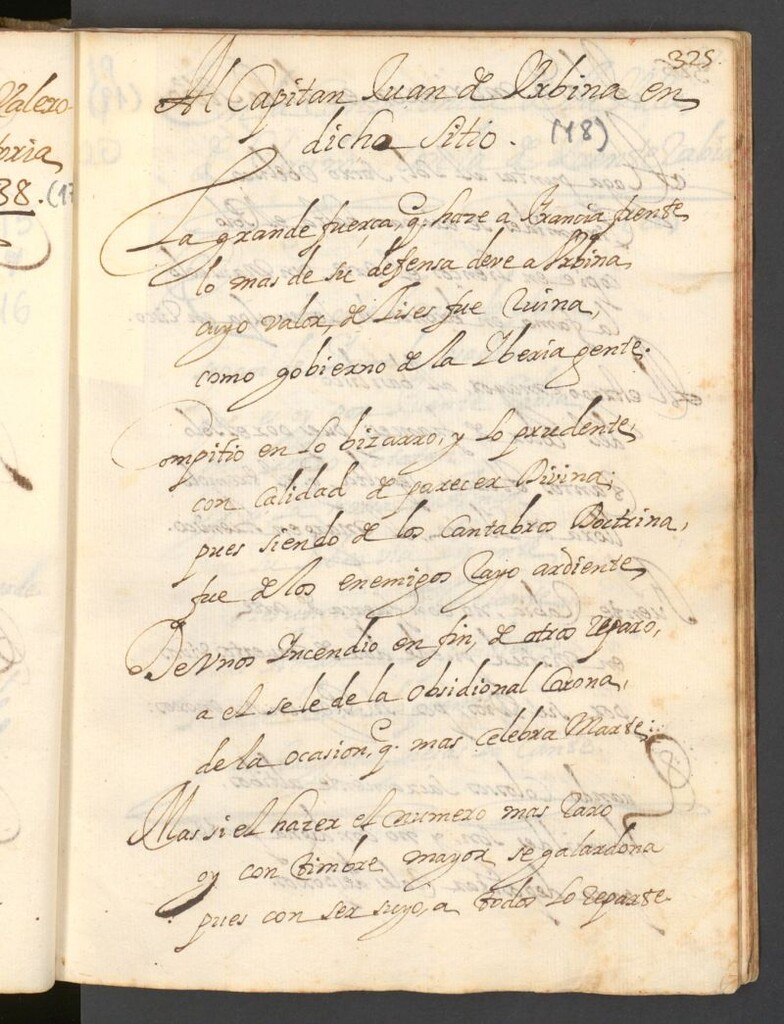 325.
Al Capitan Juan de Urbina en
dicho sitio. (18)
La grande fuerça, q. haze a Francia frente
lo mas de su defensa deve a Urbina,
cuyo valor, de Lises fue Ruina,
como gobierno de la Yberia gente.
Compitio en lo bizarro, y lo prudente,
con calidad de parecer Divina;
pues siendo de los Cantabros Doctrina,
fue de los enemigos Rayo ardiente,
De Unos Incendio en fin, de otros Reparo,
a el se le de la obsidional Corona,
de la ocasion, q. mas celebra Marte;
Mas si el hazer el numero mas Raro
oy con timbre mayor se galardona
pues con ser suyo, a todos lo Reparte
Valero
oria
38. (17